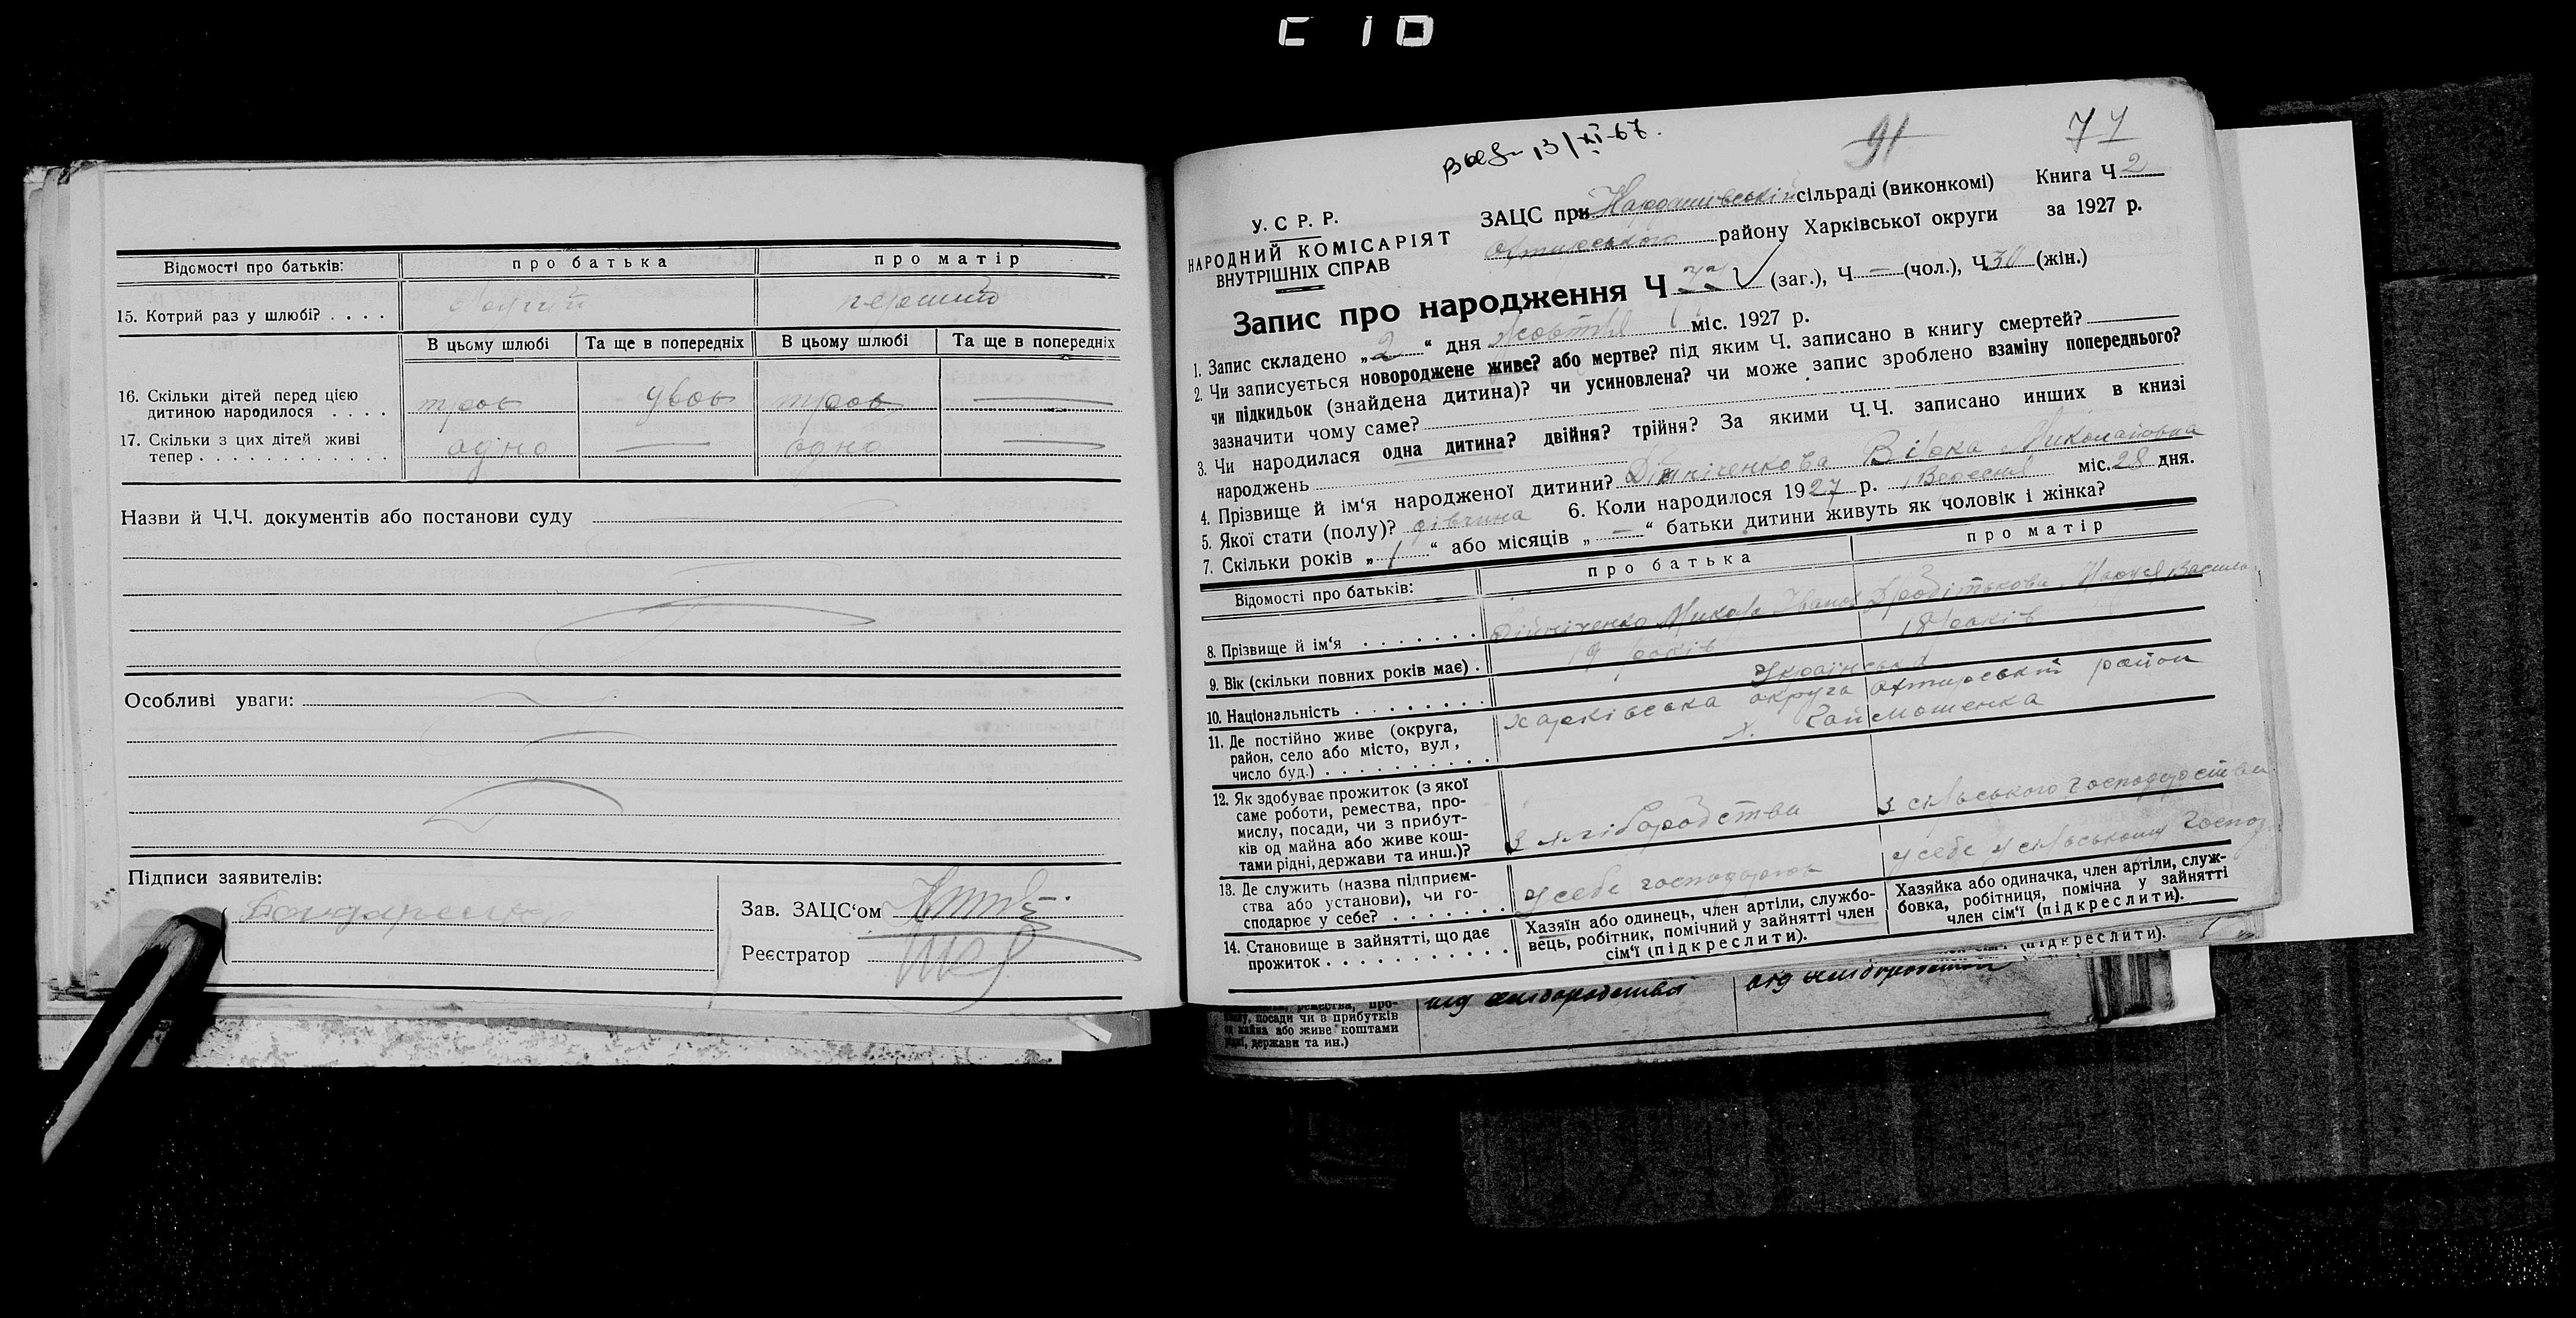 Відомості про батьків: про батька про матір
15. Котрий раз у шлюбі? . . . . другий перший
В цьому шлюбі Та ще в попередніх В цьому шлюбі Та ще в попередніх
16. Скільки дітей перед цією
дитиною народилося . . . . троє двоє троє —
17. Скільки з цих дітей живі
тепер . . . . . . . . . . . . одно — одно —
Назви й Ч.Ч. документів або постанови суду
Особливі уваги:
Підписи заявителів:
Бондаренко
Зав. ЗАЦС'ом
Реєстратор
13/XI-67.
91
77
У. С Р. Р.
НАРОДНИЙ КОМІСАРІЯТ
ВНУТРІШНІХ СПРАВ
ЗАЦС при сільраді (виконкомі) Книга Ч 2
Охтирського району Харківської округи за 1927 р.
Запис про народження Ч (заг.), Ч — (чол.), Ч 30 (жін.)
1. Запис складено „2“ дня жовтня міс. 1927 р.
2. Чи записується новороджене живе? або мертве? під яким Ч. записано в книгу смертей?
чи підкидьок (знайдена дитина)? чи усиновлена? чи може запис зроблено взаміну попереднього?
зазначити чому саме?
3. Чи народилася одна дитина? двійня? трійня? За якими Ч.Ч. записано инших в книзі
народжень
4. Прізвище й ім'я народженої дитини? Вірка Миколаївна
5. Якої стати (полу)? дівчина 6. Коли народилося 1927 р. Вересня міс. 28 дня.
7. Скільки років „1“ або місяців „—“ батьки дитини живуть як чоловік і жінка?
Відомості про батьків: про батька про матір
8. Прізвище й ім'я . . . . . . . Микола Іванов Маруся Василе
9. Вік (скільки повних років має) . 19 років 18 років
10. Національність . . . . . . . . Українська
11. Де постійно живе (округа,
район, село або місто, вул,
число буд.) . . . . . . . . . . Харківська округа Охтирський район
х. Гаймошенка
12. Як здобуває прожиток (з якої
саме роботи, ремества, про-
мислу, посади, чи з прибут-
ків од майна або живе кош-
тами рідні, держави та инш.)? З хліборобства з сільського господарства
13. Де служить (назва підприєм-
ства або установи), чи го-
сподарює у себе? . . . . . . . У себе господарює у себе у сільському господ
14. Становище в зайнятті, що дає
прожиток . . . . . . . . . . .
Хазяїн або одинець, член артіли, службо-
вець, робітник, помічний у зайнятті член
сім'ї (підкреслити).
Хазяйка або одиначка, член артіли, служ-
бовка, робітниця, помічна у зайнятті
член сім'ї (підкреслити).
(підкреслити).
ремества, про-
посади чи з прибутків
майна або живе коштами
рідні, держави та ин.)
від хліборобства від хліборобства